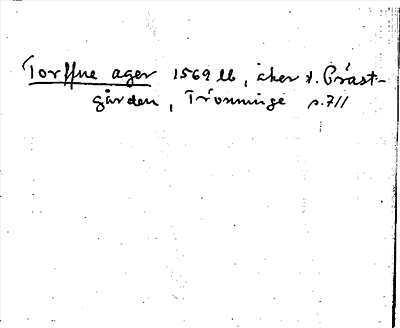 Torffue ager 1569 lb, åker t. Präst-
gården, Trönninge s. 711